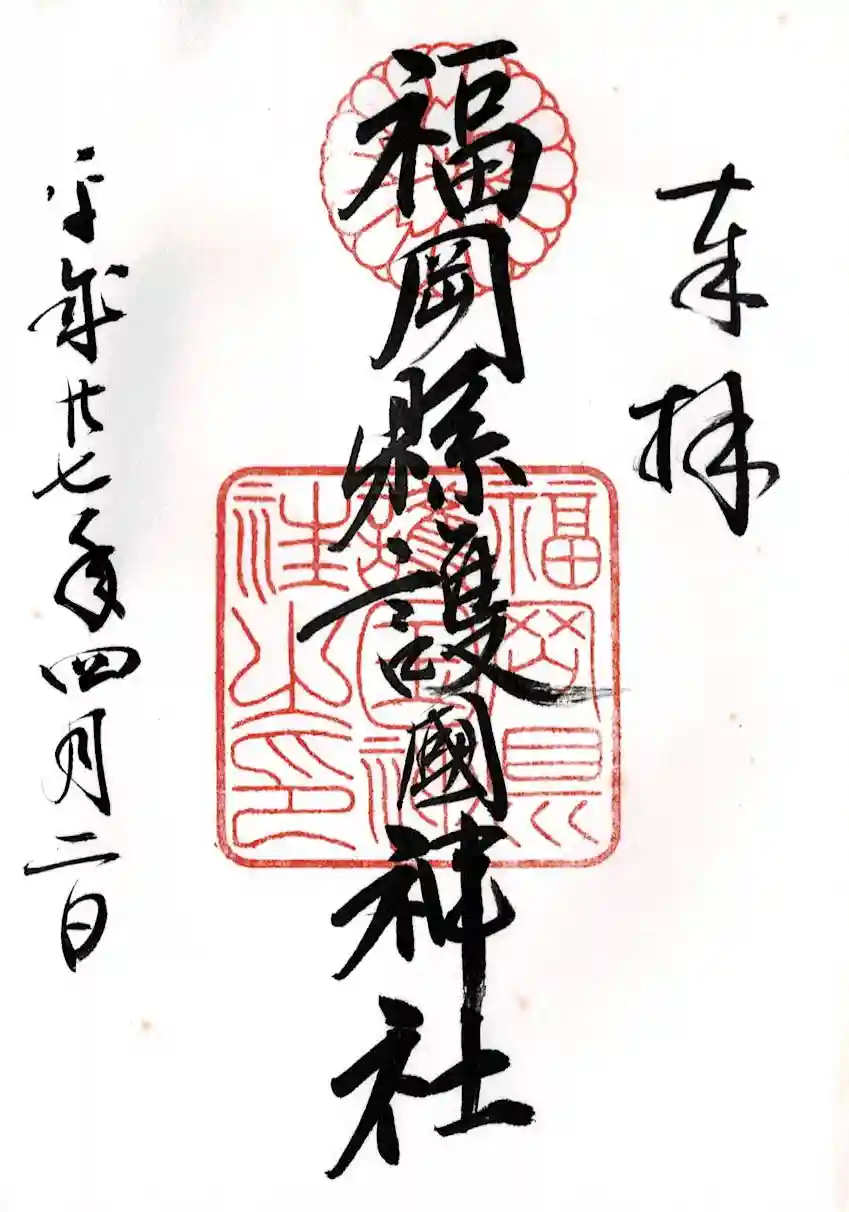 奉拝
福岡縣護國神社
福岡県護国神社之印
平成廿七年四月二日